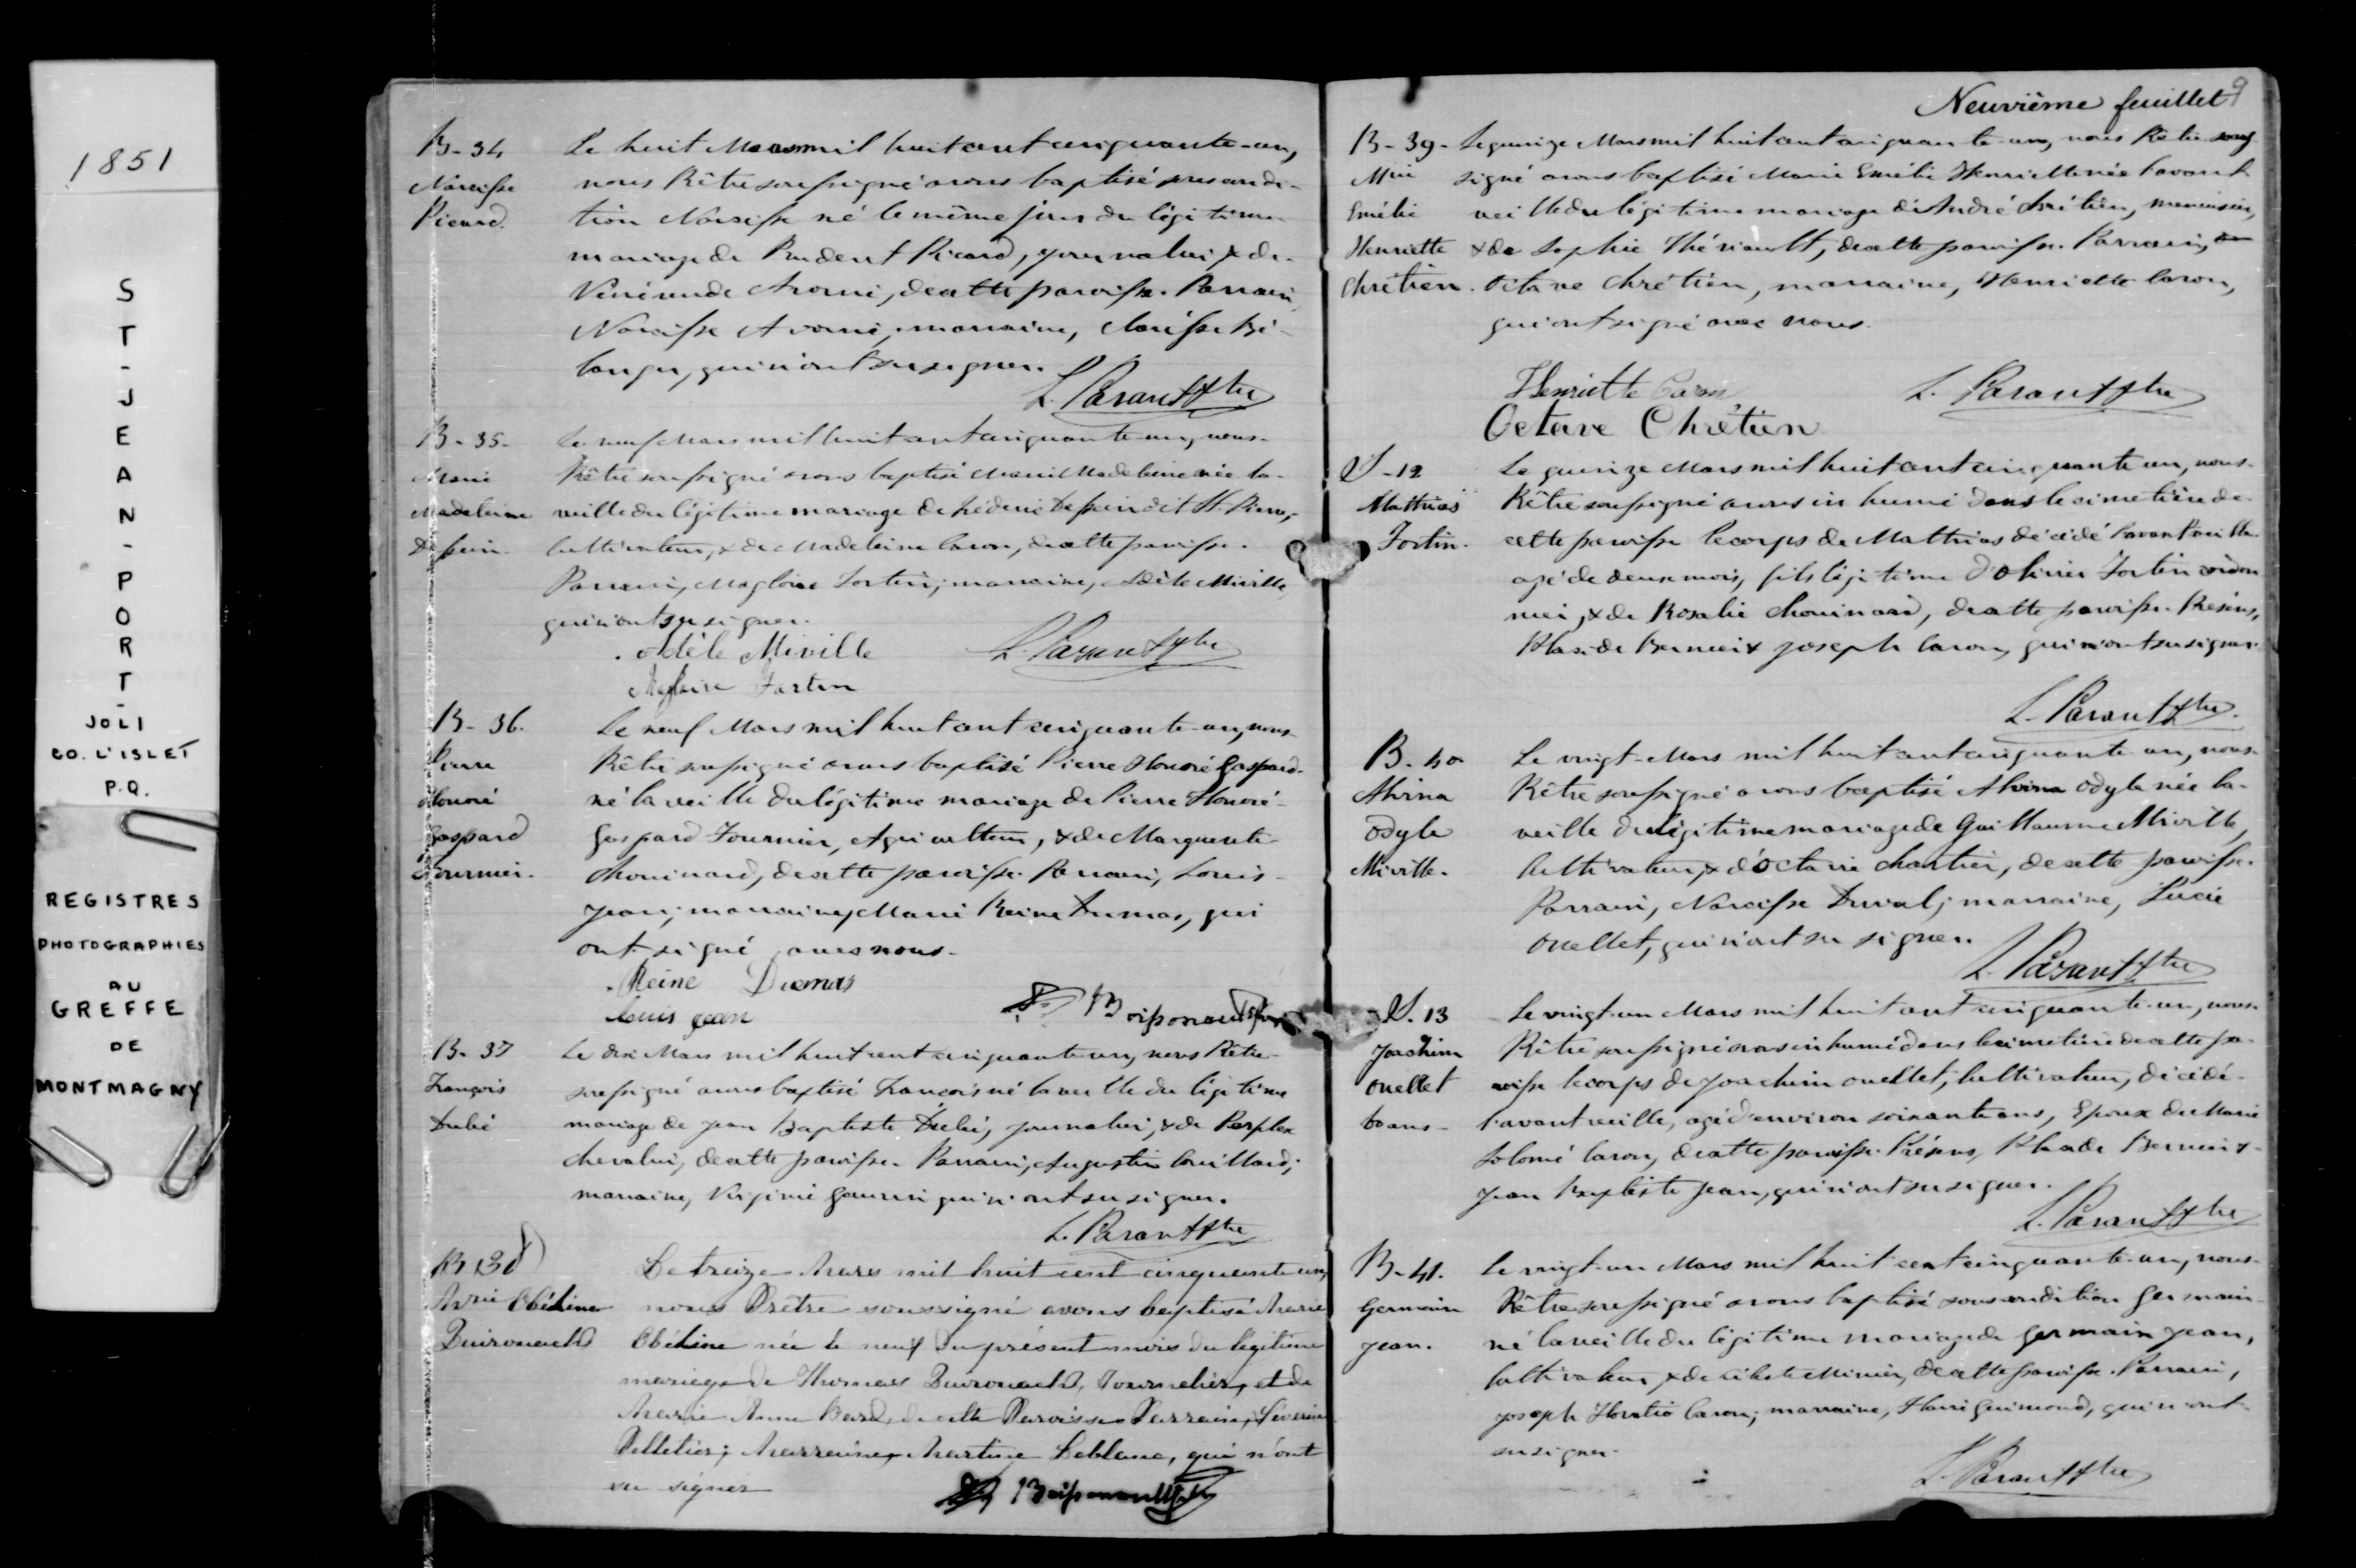 1851
ST-JEAN-PORT-
JOLI
CO. L'ISLET
P.Q.
REGISTRES
PHOTOGRAPHIES
AU
GREFFE
DE
MONTMAGNY
B-34
Narcisse
Picard.
Le huit Mars mil huit cent cinquante-un,
nous Prêtre soussigné avons baptisé sous condi-
tion Narcisse né le même jour du légitime
mariage de Prudent Picard, journalier, & de
decette paroisse. Parrain,
Narcisse marraine, Clarisse Bé-
langer, qui n'ont su signer.
L. Parant Ptre
B-35-
Marie
Madeleine
Le neuf Mars mil huit cent cinquante-un, nous
Prêtre soussigné avons baptisé Marie Madeleine née la
veille du légitime mariage de Fréderic dit St. Pierre,
Cultivateur, & de Madeleine Caron, de cette paroisse.
Parrain, Magloire Fortin; marraine, Adèle Miville,
qui n'ont su signer.
Adèle Miville L. Parant Ptre
Magloire Fortin
B-36.
Pierre
Honoré
Gaspard
Fournier.
Le neuf Mars mil huit cent cinquante-un, nous
Prêtre soussigné avons baptisé Pierre Honoré Gaspard
né la veille du légitime mariage de Pierre Honoré
Gaspard Fournier, Agriculteur, & de Marguerite
Chouinard, de cette paroisse. Parrain, Louis
Jean; marraine, Marie Reine Dumas, qui
ont signé avec nous.
Reine Dumas
Louis Jean
B-37
François
Dubé
Le dix Mars mil huit cent cinquante-un, nous Prêtre
soussigné avons baptisé François né la veille du légitime
mariage de Jean Baptiste Dubé, journalier, & de
de cette paroisse. Parrain, Augustin Couillard;
marraine, Virginie qui n'ont su signer.
L. Parant Ptre
B 38
Marie Obéline
Le treize Mars mil huit cent cinquante un,
nous Prêtre soussigné avons baptisé Marie
Obéline née le neuf du présent mois du légitime
mariage de Thomas Journalier, et de
Marie Anne de cette Paroisse Parrain, Séverin
Pelletier; Marraine, Martine Leblanc, qui n'ont
su signer
Neuvième feuillet 9
B-39-
Mrie
Emélie
Henriette
Chrétien.
Le quinze Mars mil huit cent cinquante-un, nous Prêtre sous
signé avons baptisé Marie Emélie Henriette née l'avant
veille du légitime mariage de André Chrétien, menuisier,
& de Sophie Thériault, de cette paroisse. Parrain,
Octave Chrétien, marraine, Henriette Caron,
qui ont signé avec nous.
Henriette Caron L. Parant Ptre
Octave Chrétien
S-12
Mathias
Fortin.
Le quinze Mars mil huit cent cinquante un, nous
Prêtre soussigné avons inhumé dans le cimetière de
cette paroisse le corps de Mathias décédé l'avant veille
agé de deux mois, fils légitime d'Olivier Fortin cordon
nier, & de Rosalie Chouinard, de cette paroisse. Présens,
Placide Bernier & Joseph Caron, qui n'ont su signer.
L. Parant Ptre.
B-40
Alvina
Odyle
Miville.
Le vingt Mars mil huit cent cinquante-un, nous
Prêtre soussigné avons baptisé Alvina Odyle née la
veille du légitime mariage de Guillaume Miville,
Cultivateur, & d'Octavie Chartier, de cette paroisse.
Parrain, Narcisse Duval; marraine, Lucie
Ouellet, qui n'ont su signer.
L. Parant Ptre
S. 13
Joachim
Ouellet
60 ans-
Le vingt-un Mars mil huit cent cinquante-un, nous
Prêtre soussigné avons inhumé dans le cimetière de cette pa-
roisse le corps de Joachim Ouellet, Cultivateur, décédé
l'avant veille, agé d'environ soixante ans, Epoux de Marie
Solomé Caron, de cette paroisse. Présens, Placide Bernier &
Jean Baptiste Jean, qui n'ont su signer.
L. Parant Ptre
B-41.
Germain
Jean.
Le vingt-un Mars mil huit cent cinquante-un, nous
Prêtre soussigné avons baptisé sous condition Germain
né la veille du légitime mariage de Germain Jean,
Cultivateur, & de de cette paroisse. Parrain,
Joseph Horatio Caron; marraine, Guimond, qui n'ont
su signer.
L. Parant Ptre